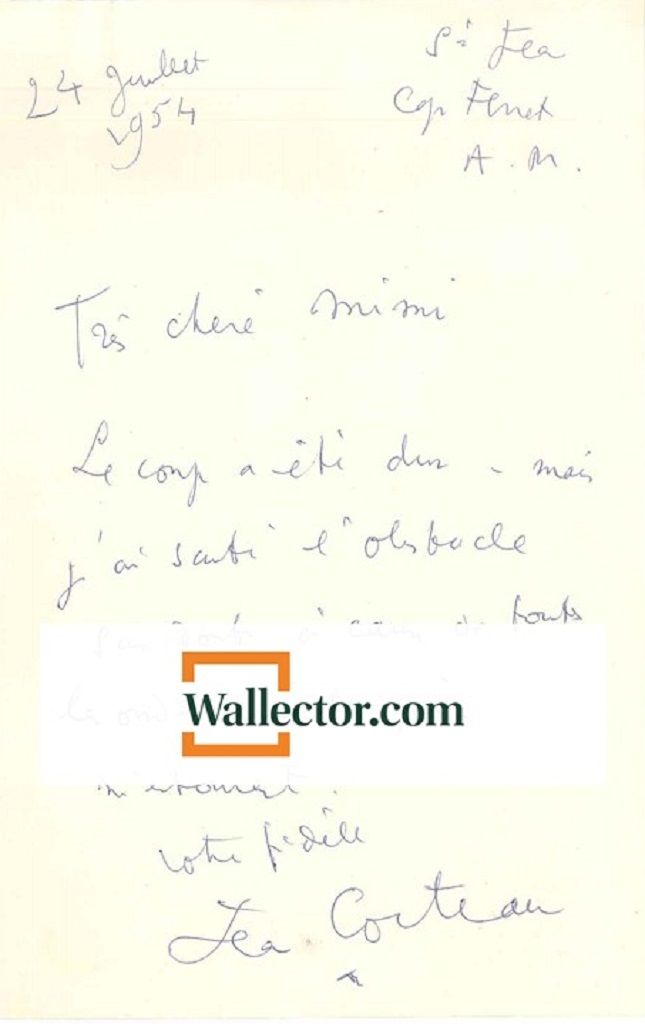 24 Juillet
1954
St Jea
Cap Ferrat
A. M.
Très chère Mimi
Le coup a été dur - mais
j'ai sauté l'obstacle
sans doute à cause de toutes
Wallector.com
votre fidèle
Jea Cocteau